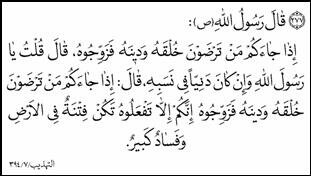 ٢٧٧ قَالَ رَسُولُ اللهِ (ص):
إِذَا جَاءَكُمْ مَنْ تَرْضَوْنَ خُلْقَهُ وَدِينَهُ فَزَوِّجُوهُ. قَالَ قُلْتُ يَا
رَسُولَ اللهِ وَإِنْ كَانَ دَنِيّاً فِي نَسَبِهِ. قَالَ: إِذَا جَاءَكُمْ مَنْ تَرْضَوْنَ
خُلْقَهُ وَدِينَهُ فَزَوِّجُوهُ إِنَّكُمْ إِلاَّ تَفْعَلُوهُ تَكُنْ فِتْنَةٌ فِي الاَرْضِ
وَفَسَادٌ كَبِيرٌ.
التهذيب/٧/٣٩٤